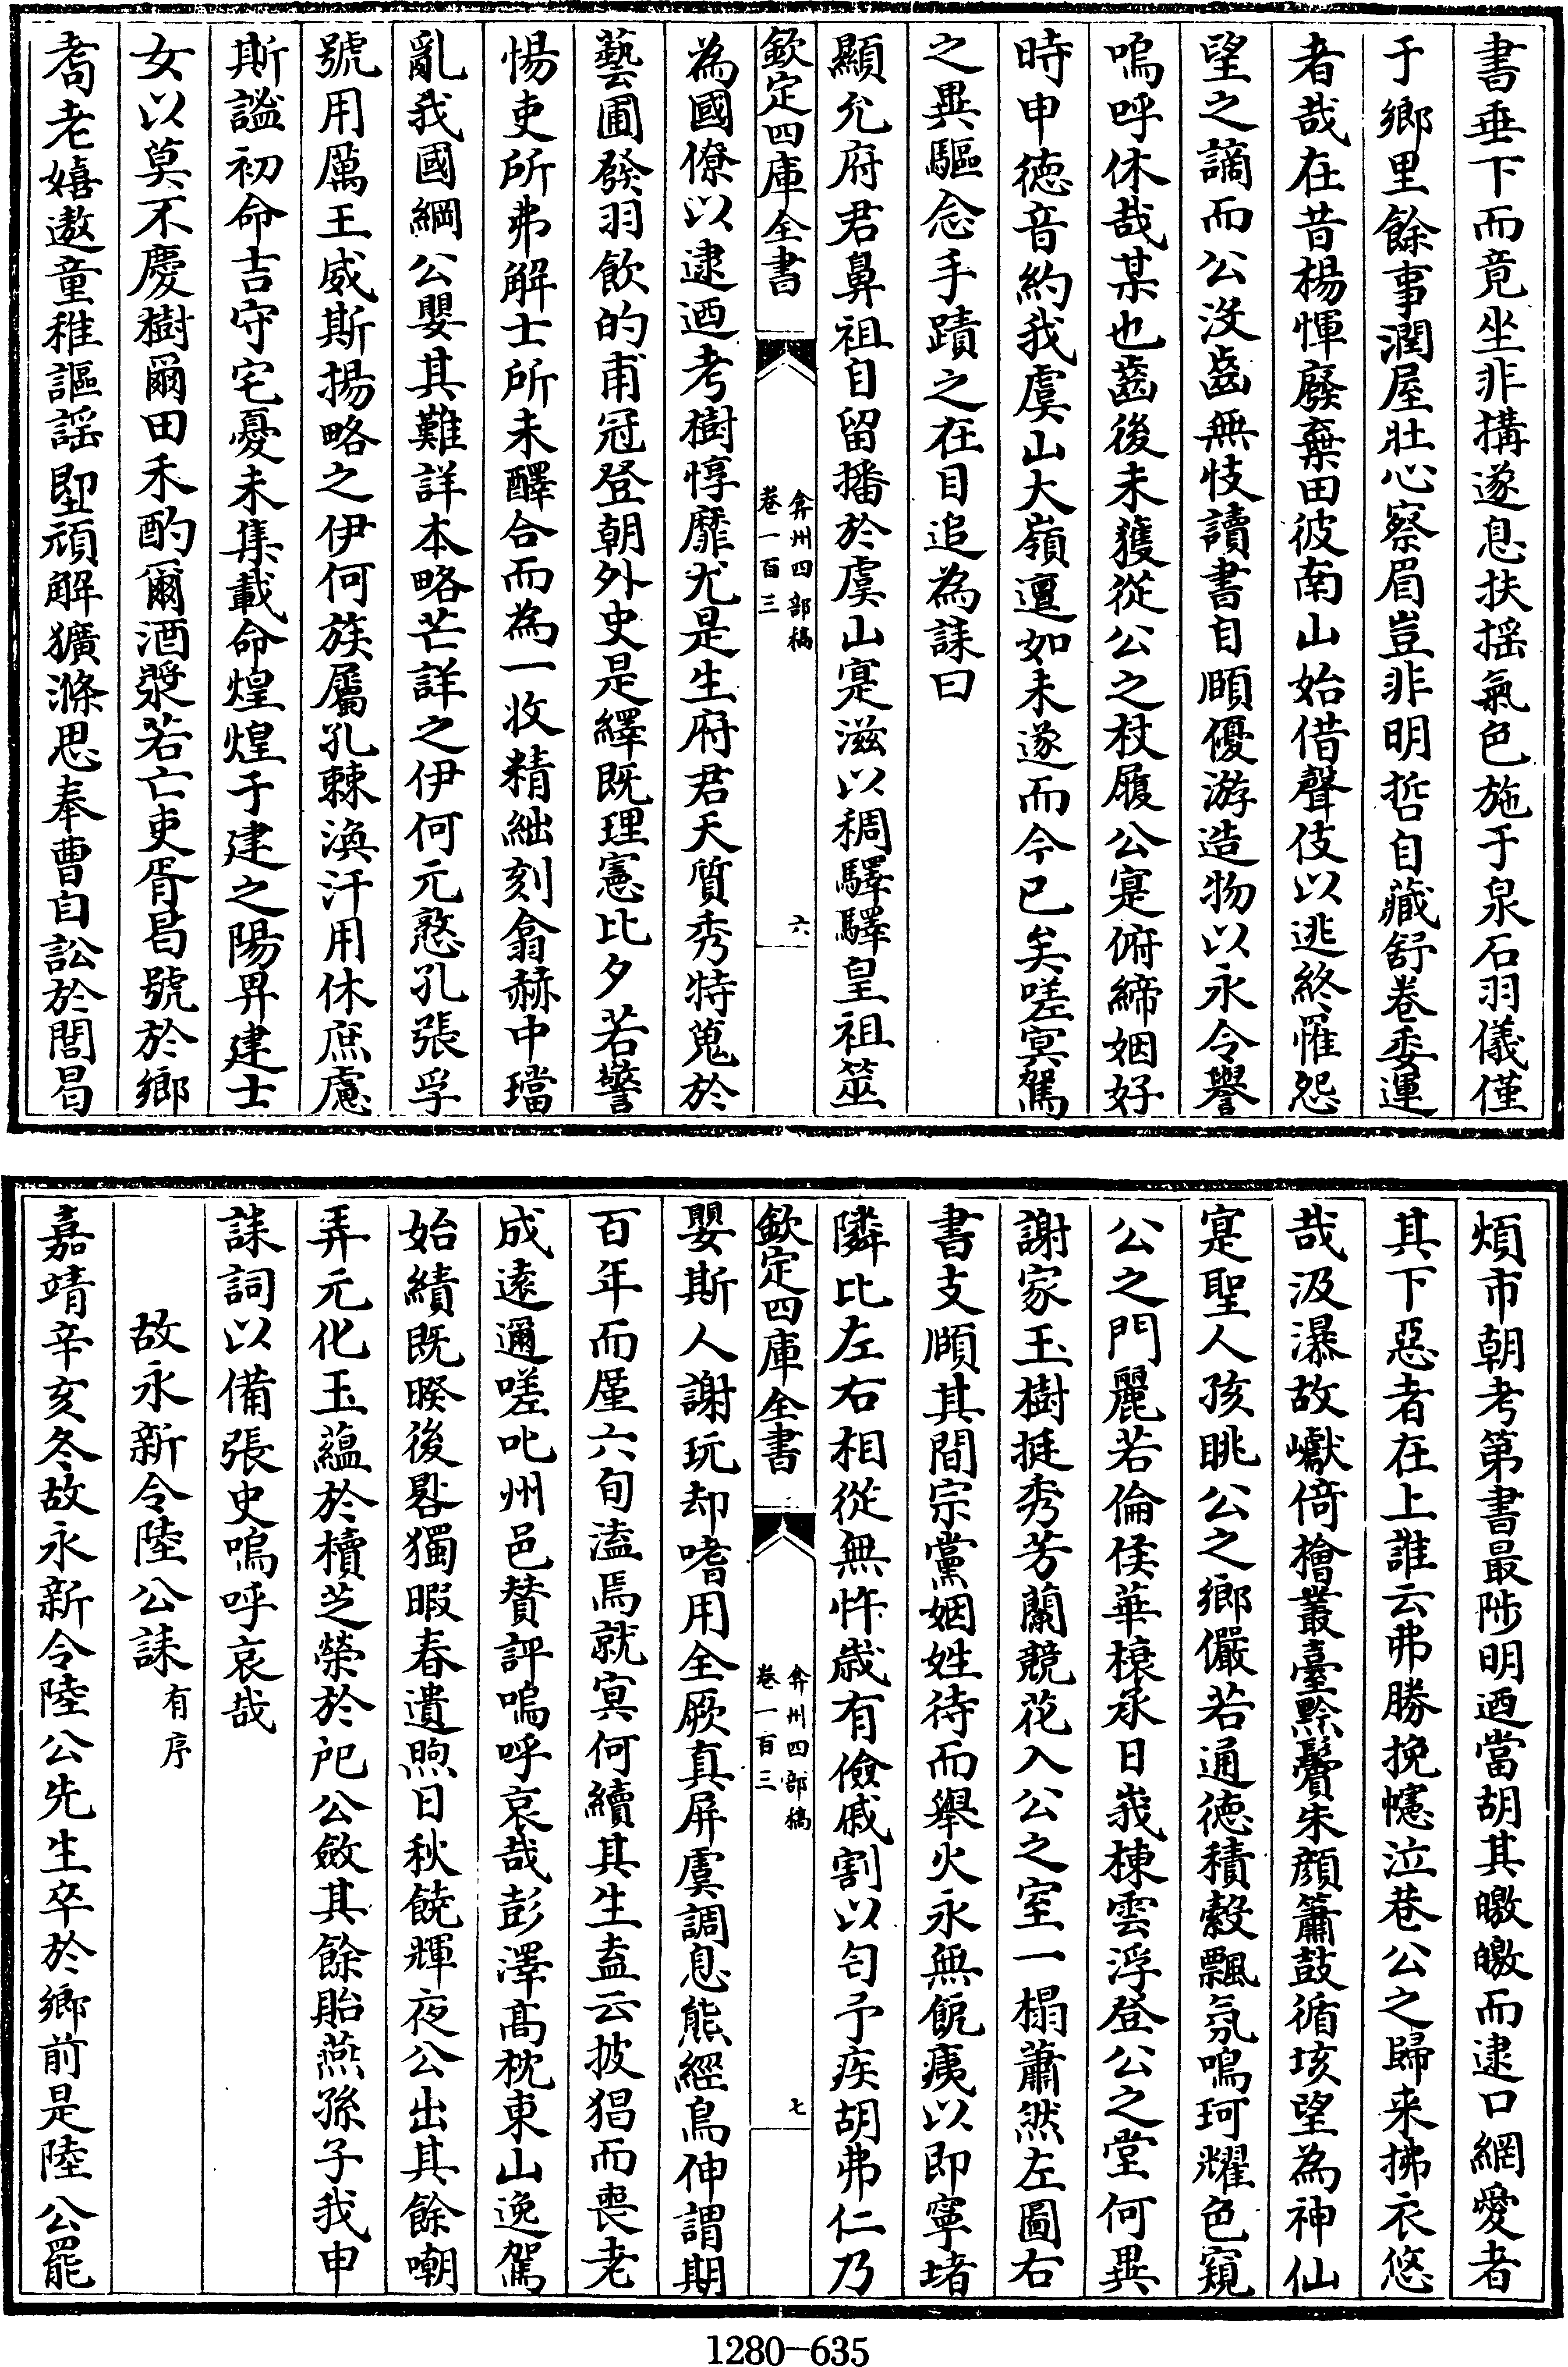 書垂下而竟坐非搆遂息扶揺氣色施于泉石羽儀僅
于鄉里餘事潤屋壯心察眉豈非明哲自藏舒卷委運
者哉在昔楊惲廢棄田彼南山始借聲伎以逃終罹怨
望之謫而公沒齒無忮讀書自頤優游造物以永令譽
嗚呼休哉某也齒後未獲從公之杖履公寔俯締姻好
時申徳音約我虞山大嶺邅如未遂而今已矣嗟冥駕
之異驅念手蹟之在目追為誄曰
顯允府君鼻祖自留播於虞山寔滋以稠驛驛皇祖筮
欽定四庫全書
弇州四部稿
卷一百三
六
為國僚以逮迺考樹惇靡尤是生府君天質秀特蒐於
藝圃發羽飲的甫冠登朝外史是繹既理憲比夕若警
惕吏所弗解士所未醳合而為一收精絀刻翕赫中璫
亂我國綱公嬰其難詳本略芒詳之伊何元憝孔張孚
號用厲王威斯揚略之伊何族屬孔棘渙汗用休庶慮
斯謐初命吉守宅憂未集載命煌煌于建之陽畀建士
女以莫不慶樹爾田禾酌爾酒漿若亡吏胥曷號於鄉
耆老嬉遨童稚謳謡堲頑解獷滌思奉曹自訟於閭曷
煩市朝考第書最陟明迺當胡其皦皦而逮口網愛者
其下惡者在上誰云弗勝挽幰泣巷公之歸来拂衣悠
哉汲瀑故巘倚檜叢臺黟鬢朱顔簫鼓循垓望為神仙
寔聖人孩眺公之鄉儼若通徳積縠飄氛鳴珂耀色窺
公之門麗若倫侯華榱承日峩棟雲浮登公之堂何異
謝家玉樹挺秀芳蘭競花入公之室一榻蕭然左圖右
書支頤其間宗黨姻姓待而舉火永無飢痍以即寧堵
隣比左右相從無忤歳有儉戚割以匄予疾胡弗仁乃
欽定四庫全書
弇州四部稿
卷一百三
七
嬰斯人謝玩却嗜用全厥真屏虞調息熊經鳥伸謂期
百年而厪六旬溘焉就冥何續其生盍云披猖而喪老
成逺邇嗟叱州邑賛評嗚呼哀哉彭澤髙枕東山逸駕
始績既暌後晷獨暇春遺煦日秋饒輝夜公出其餘嘲
弄元化玉藴於櫝芝榮於戺公斂其餘貽燕孫子我申
誄詞以備張史嗚呼哀哉
故永新令陸公誄有序
嘉靖辛亥冬故永新令陸公先生卒於鄉前是陸公罷
1280-635